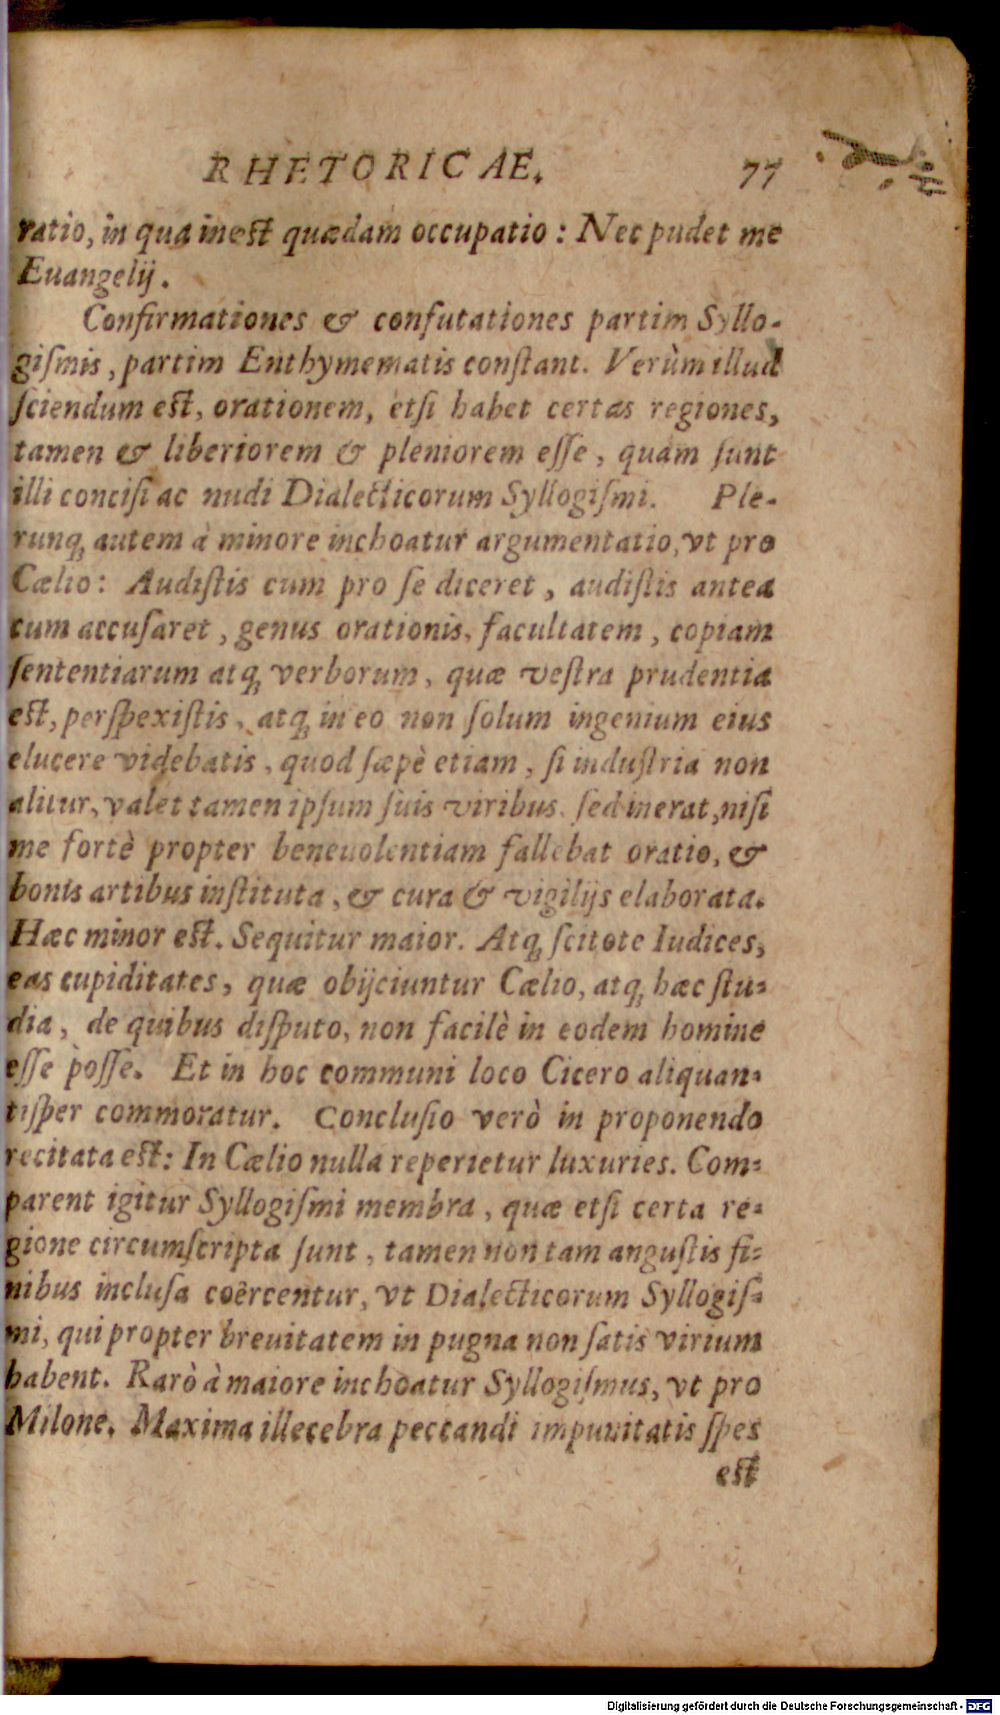 RHETORICAE. 77
ratio, in qua inest quædam occupatio : Nec pudet me
Euangelij.
Confirmationes & confutationes partim Syllo-
giſmis, partim Enthymematis conſtant. Verùm illud
ſciendum est, orationem, etſi habet certas regiones,
tamen & liberiorem & pleniorem eſſe, quam ſunt
illi conciſi ac nudi Dialecticorum Syllogiſmi. Ple-
runq; autem à minore inchoatur argumentatio, vt pro
Cælio: Audiſtis cum pro ſe diceret, audiſtis antea
cum accuſaret, genus orationis, facultatem, copiam
ſententiarum atq; verborum, quæ veſtra prudentia
est, perſpexiſtis, atq; in eo non ſolum ingenium eius
elucere videbatis, quod ſæpè etiam, ſi induſtria non
alitur, valet tamen ipſum ſuis viribus. ſed inerat, niſi
me fortè propter beneuolentiam fallebat oratio, &
bonis artibus inſtituta, & cura & vigilijs elaborata.
Hæc minor est. Sequitur maior. Atq; ſcitote Iudices,
eas cupiditates, quæ obijciuntur Cælio, atq; hæc ſtu-
dia, de quibus diſputo, non facilè in eodem homine
eſſe poſſe. Et in hoc communi loco Cicero aliquan-
tiſper commoratur. Concluſio verò in proponendo
recitata est: In Cælio nulla reperietur luxuries. Com-
parent igitur Syllogiſmi membra, quæ etſi certa re-
gione circumſcripta ſunt, tamen non tam anguſtis fi-
nibus incluſa coërcentur, vt Dialecticorum Syllogiſ-
mi, qui propter breuitatem in pugna non ſatis virium
habent. Rarò à maiore inchoatur Syllogiſmus, vt pro
Milone. Maxima illecebra peccandi impunitatis ſpes
est
Digitalisierung gefördert durch die Deutsche Forschungsgemeinschaft - DFG